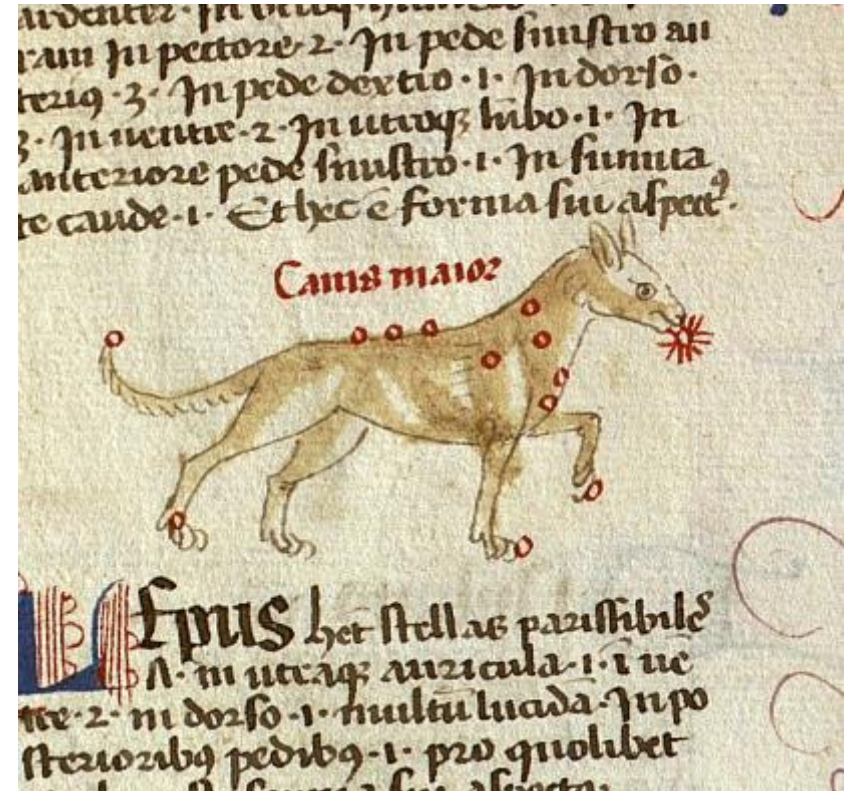 ram In pectore·2· In pede sinistro an
teriꝯ·3· In pede dextro·1· In dorso·
3· In uentre·2· In utroqꝫ lūbo·1· In
anteriore pede sinistro·1· In sum̄ita
te caude·1· Et hec ē forma sui aspectꝰ·
Canis maior
LEpus het stellas
A· in utraqꝫ auricula·1· ī uē
tre·2· in dorso·1· multū lucidā· In po
sterioribꝯ pedibꝯ·1· pro quolibet